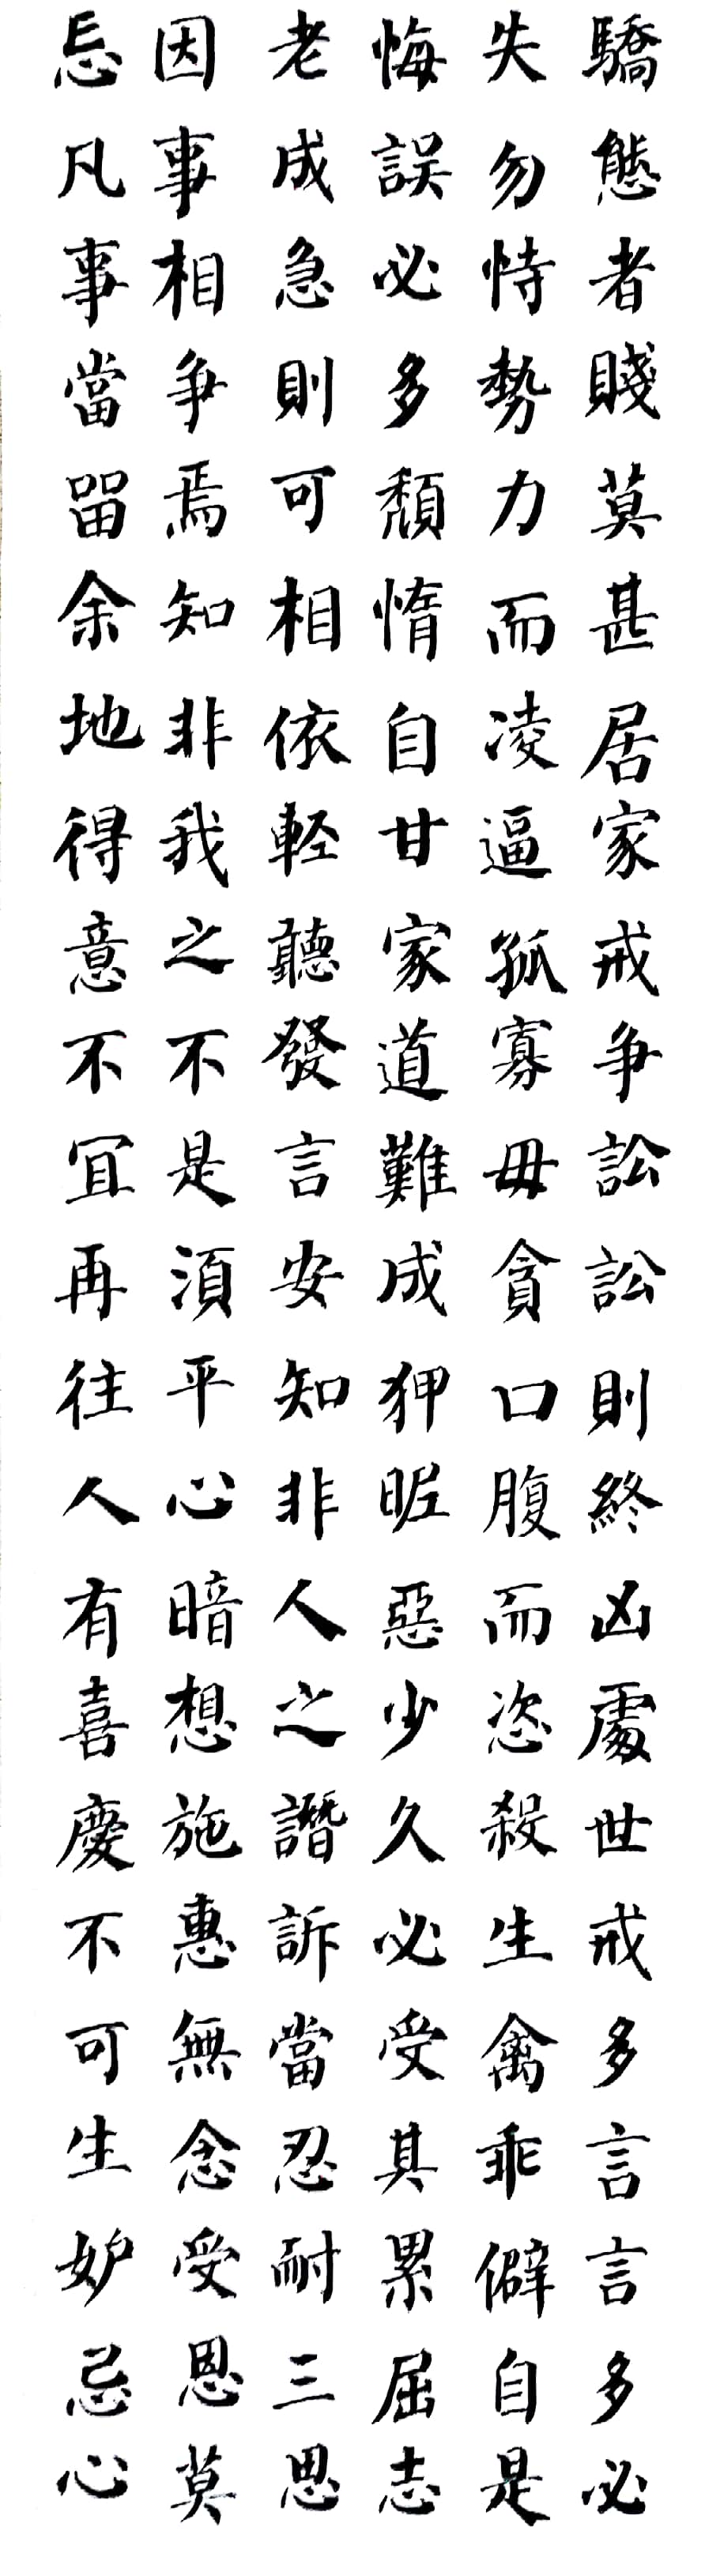 驕態者賤莫甚居家戒爭訟訟則終凶處世戒多言言多必
失勿恃勢力而凌逼孤寡毋貪口腹而恣殺生禽乖僻自是
悔誤必多頹惰自甘家道難成狎昵惡少久必受其累屈志
老成急則可相依輕聽發言安知非人之譖訴當忍耐三思
因事相爭焉知非我之不是須平心暗想施惠無念受恩莫
忘凡事當留余地得意不宜再往人有喜慶不可生妒忌心